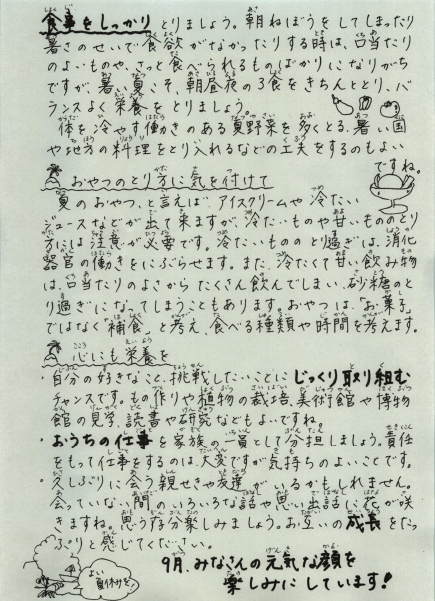 食事をしっかり とりましょう。朝ねぼうをしてしまったり
暑さのせいで食欲がなかったりする時は、口当たり
のよいものや、さっと食べられるものばかりになりがち
ですが、暑い夏こそ、朝昼夜の3食をきちんととり、バ
ランスよく栄養をとりましょう。
体を冷やす働きのある夏野菜を多くとる、暑い国
や地方の料理をとり入れるなどの工夫をするのもよい
ですね。
おやつのとり方に気を付けて
夏のおやつ、と言えば、アイスクリームや冷たい
ジュースなどが出て来ますが、冷たいものや甘いもののとり
方には注意が必要です。冷たいもののとり過ぎは、消化
器官の働きをにぶらせます。また、冷たくて甘い飲み物
は、口当たりのよさからたくさん飲んでしまい、砂糖のと
り過ぎになってしまうこともあります。おやつは、「お菓子」
ではなく「補食」と考え、食べる種類や時間を考えます。
心にも栄養を
・自分の好きなこと、挑戦したいことにじっくり取り組む
チャンスです。もの作りや植物の栽培、美術館や博物
館の見学、読書や研究などもよいですね。
・おうちの仕事を家族の一員として分担しましょう。責任
をもって仕事をするのは、大変ですが気持ちのよいことです。
・久しぶりに会う親せきや友達がいるかもしれません。
会っていない間のいろいろな話や思い出話に花が咲
きますね。思う存分楽しみましょう。お互いの成長をたっ
ぷりと感じてください。
9月、みなさんの元気な顔を
楽しみにしています!
よい
夏休みを。